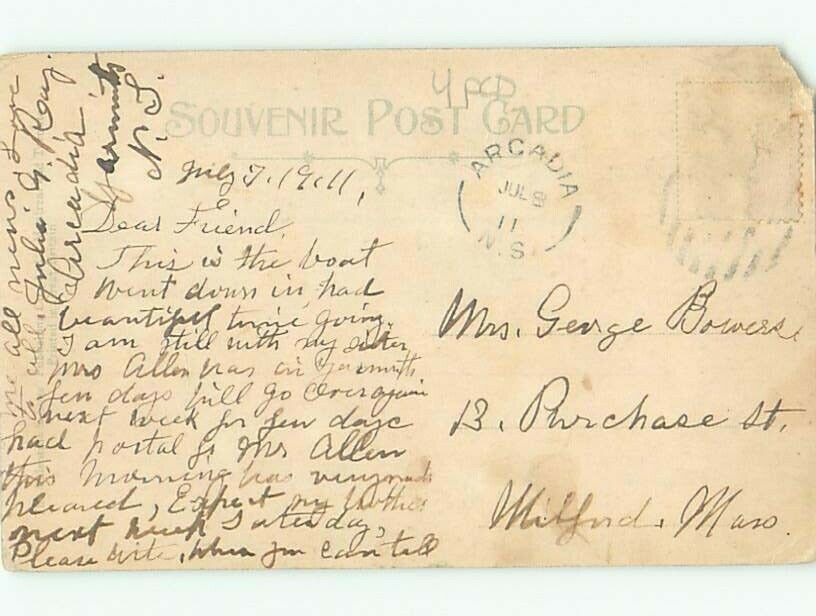 SOUVENIR POST CARD
ARCADIA
JUL 8
11
N.S.
July 7, 1911,
Dear Friend,
This is the boat
went down in, had
beautiful time going,
I am still with my sister
Mrs Allen was in Yarmouth
few days will go over again
next week for few days
had postal fr Mr Allen
this morning was very much
pleased, Expect my brother
next week Saturday,
Please write, when you can tell
me all news Love
to all Julia G.
Arcadia
Yarmouth
N.S.
Mrs. George Bowers,
13, Purchase St.
Milford, Mass.